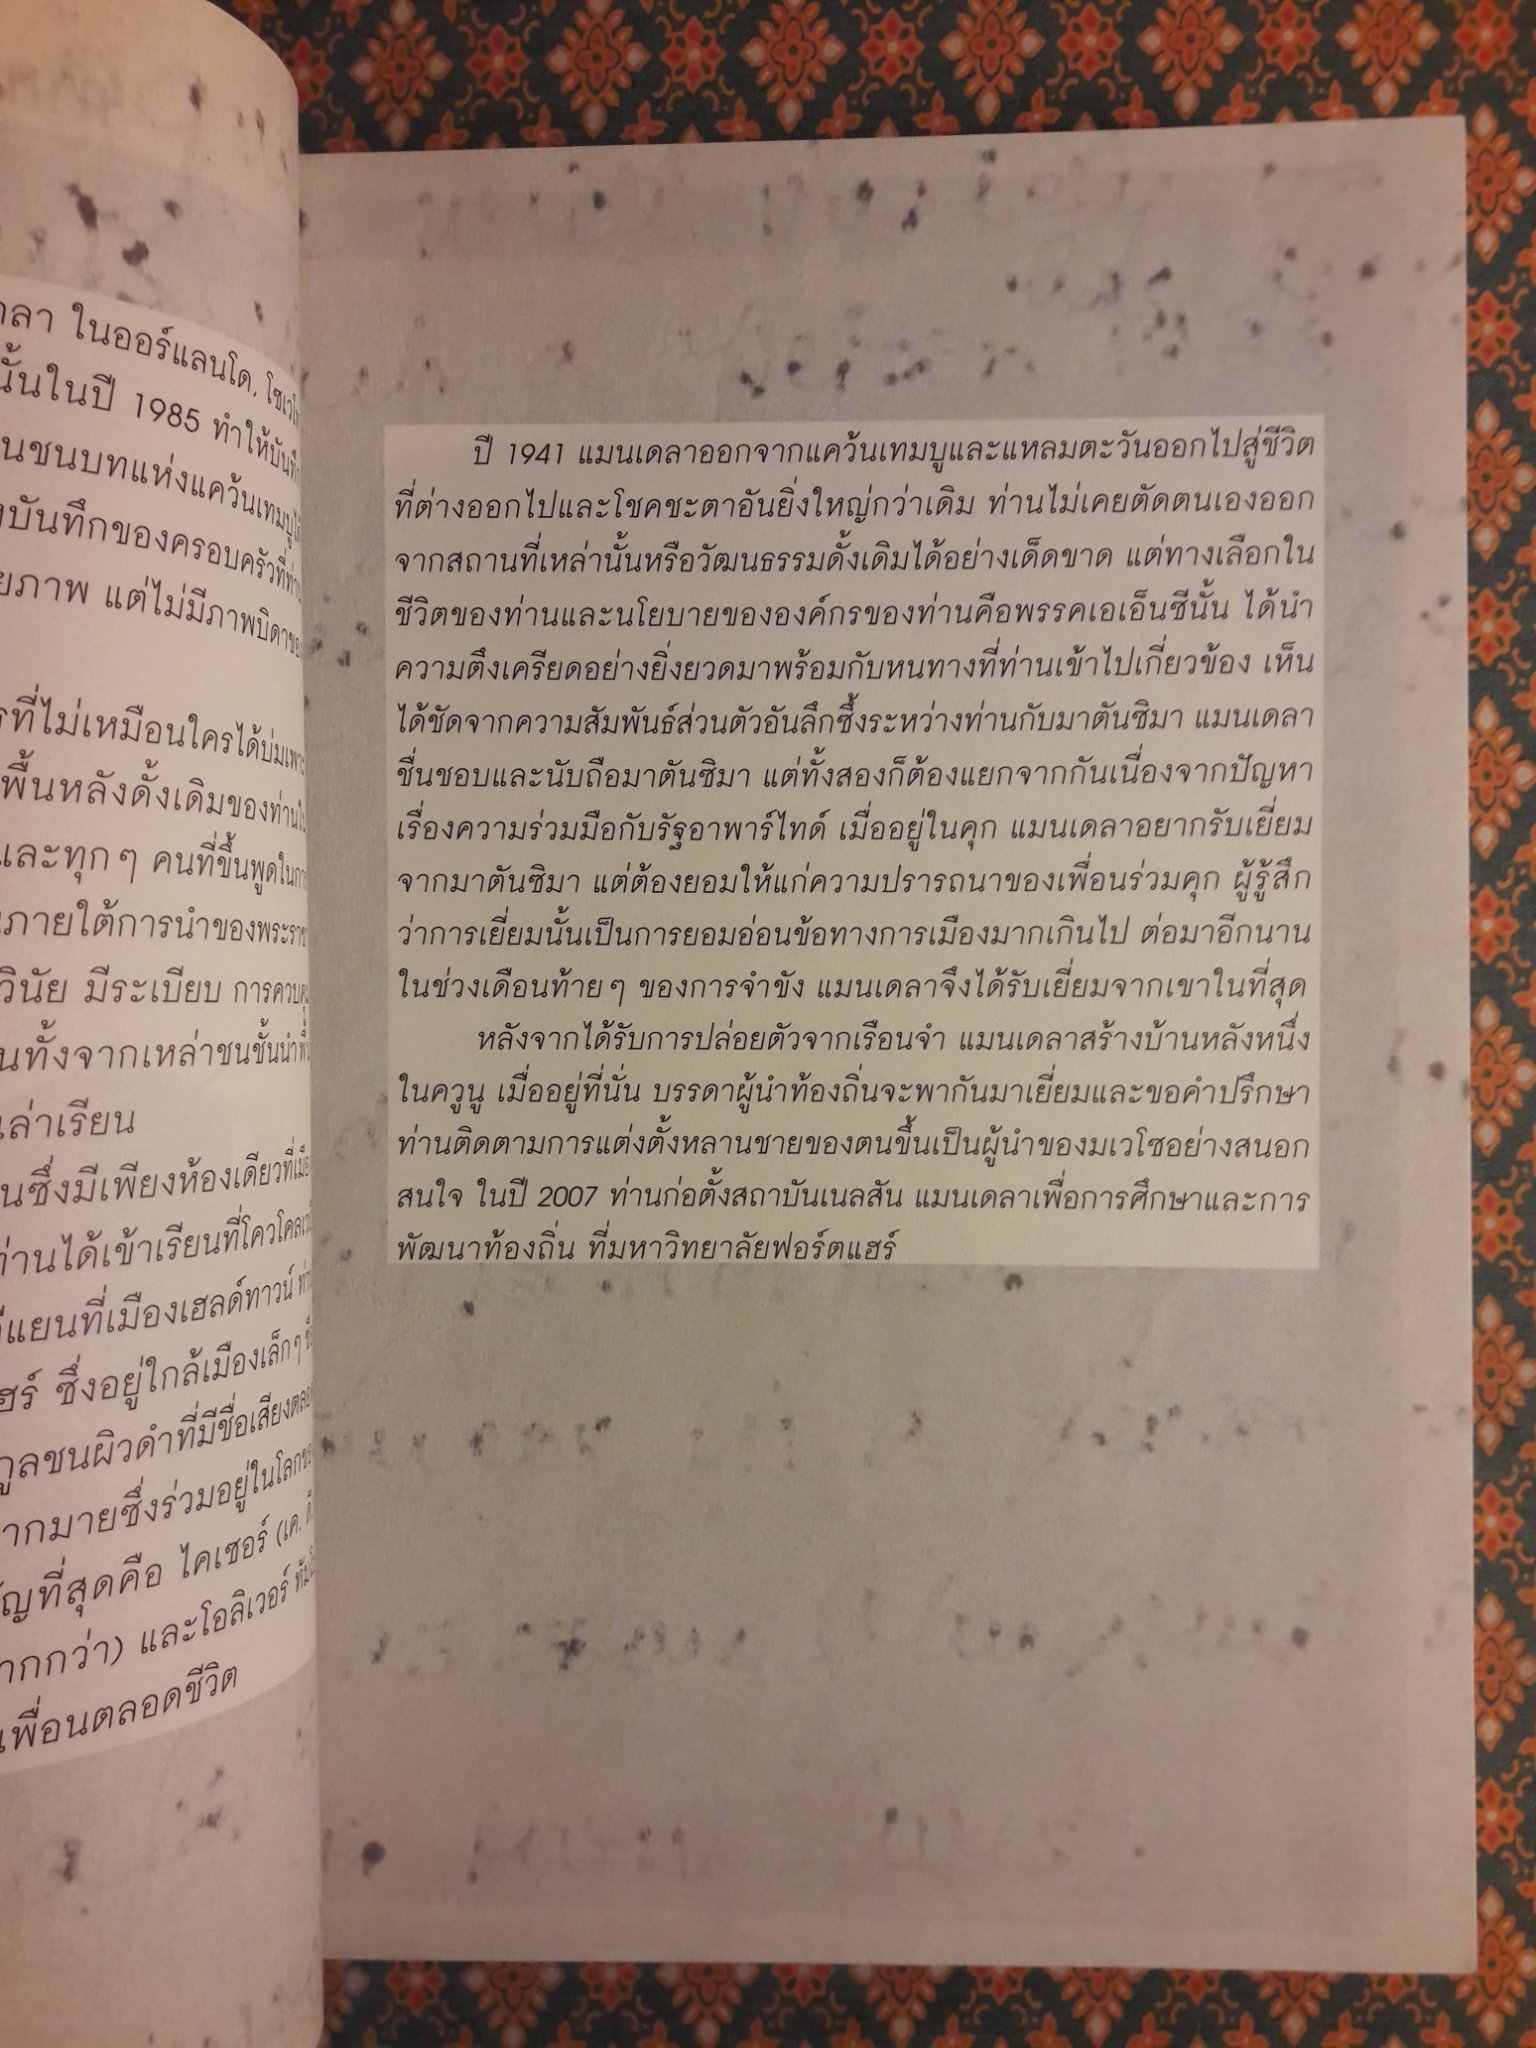 ในออร์แลนโด,
นั้นในปี 1985 ทำให้บันทึก
นชนบทแห่งแคว้นเทมบู
บันทึกของครอบครัวที่
ยภาพ แต่ไม่มีภาพบิดา
ที่ไม่เหมือนใครได้บ่มเพาะ
พื้นหลังดั้งเดิมของท่าน
และทุกๆ คนที่ขึ้นพูดใน
ภายใต้การนำของ
วินัย มีระเบียบ การควบคุม
ทั้งจากเหล่าชนชั้นนำ
เล่าเรียน
ซึ่งมีเพียงห้องเดียวที่
ท่านได้เข้าเรียนที่
ที่เมืองเฮลด์ทาวน์
ซึ่งอยู่ใกล้เมืองเล็กๆ
ชนผิวดำที่มีชื่อเสียง
ซึ่งร่วมอยู่ในโลก
ที่สุดคือ ไคเซอร์ (เค.
ากกว่า) และโอลิเวอร์
เพื่อนตลอดชีวิต
ปี 1941 แมนเดลาออกจากแคว้นเทมบูและแหลมตะวันออกไปสู่ชีวิต
ที่ต่างออกไปและโชคชะตาอันยิ่งใหญ่กว่าเดิม ท่านไม่เคยตัดตนเองออก
จากสถานที่เหล่านั้นหรือวัฒนธรรมดั้งเดิมได้อย่างเด็ดขาด แต่ทางเลือกใน
ชีวิตของท่านและนโยบายขององค์กรของท่านคือพรรคเอเอ็นซีนั้น ได้นำ
ความตึงเครียดอย่างยิ่งยวดมาพร้อมกับหนทางที่ท่านเข้าไปเกี่ยวข้อง เห็น
ได้ชัดจากความสัมพันธ์ส่วนตัวอันลึกซึ้งระหว่างท่านกับมาตันซิมา แมนเดลา
ชื่นชอบและนับถือมาตันซิมา แต่ทั้งสองก็ต้องแยกจากกันเนื่องจากปัญหา
เรื่องความร่วมมือกับรัฐอาพาร์ไทด์ เมื่ออยู่ในคุก แมนเดลาอยากรับเยี่ยม
จากมาตันซิมา แต่ต้องยอมให้แก่ความปรารถนาของเพื่อนร่วมคุก ผู้รู้สึก
ว่าการเยี่ยมนั้นเป็นการยอมอ่อนข้อทางการเมืองมากเกินไป ต่อมาอีกนาน
ในช่วงเดือนท้ายๆ ของการจำขัง แมนเดลาจึงได้รับเยี่ยมจากเขาในที่สุด
หลังจากได้รับการปล่อยตัวจากเรือนจำ แมนเดลาสร้างบ้านหลังหนึ่ง
ในควูนู เมื่ออยู่ที่นั่น บรรดาผู้นำท้องถิ่นจะพากันมาเยี่ยมและขอคำปรึกษา
ท่านติดตามการแต่งตั้งหลานชายของตนขึ้นเป็นผู้นำของมเวโซอย่างสนอก
สนใจ ในปี 2007 ท่านก่อตั้งสถาบันเนลสัน แมนเดลาเพื่อการศึกษาและการ
พัฒนาท้องถิ่น ที่มหาวิทยาลัยฟอร์ตแฮร์